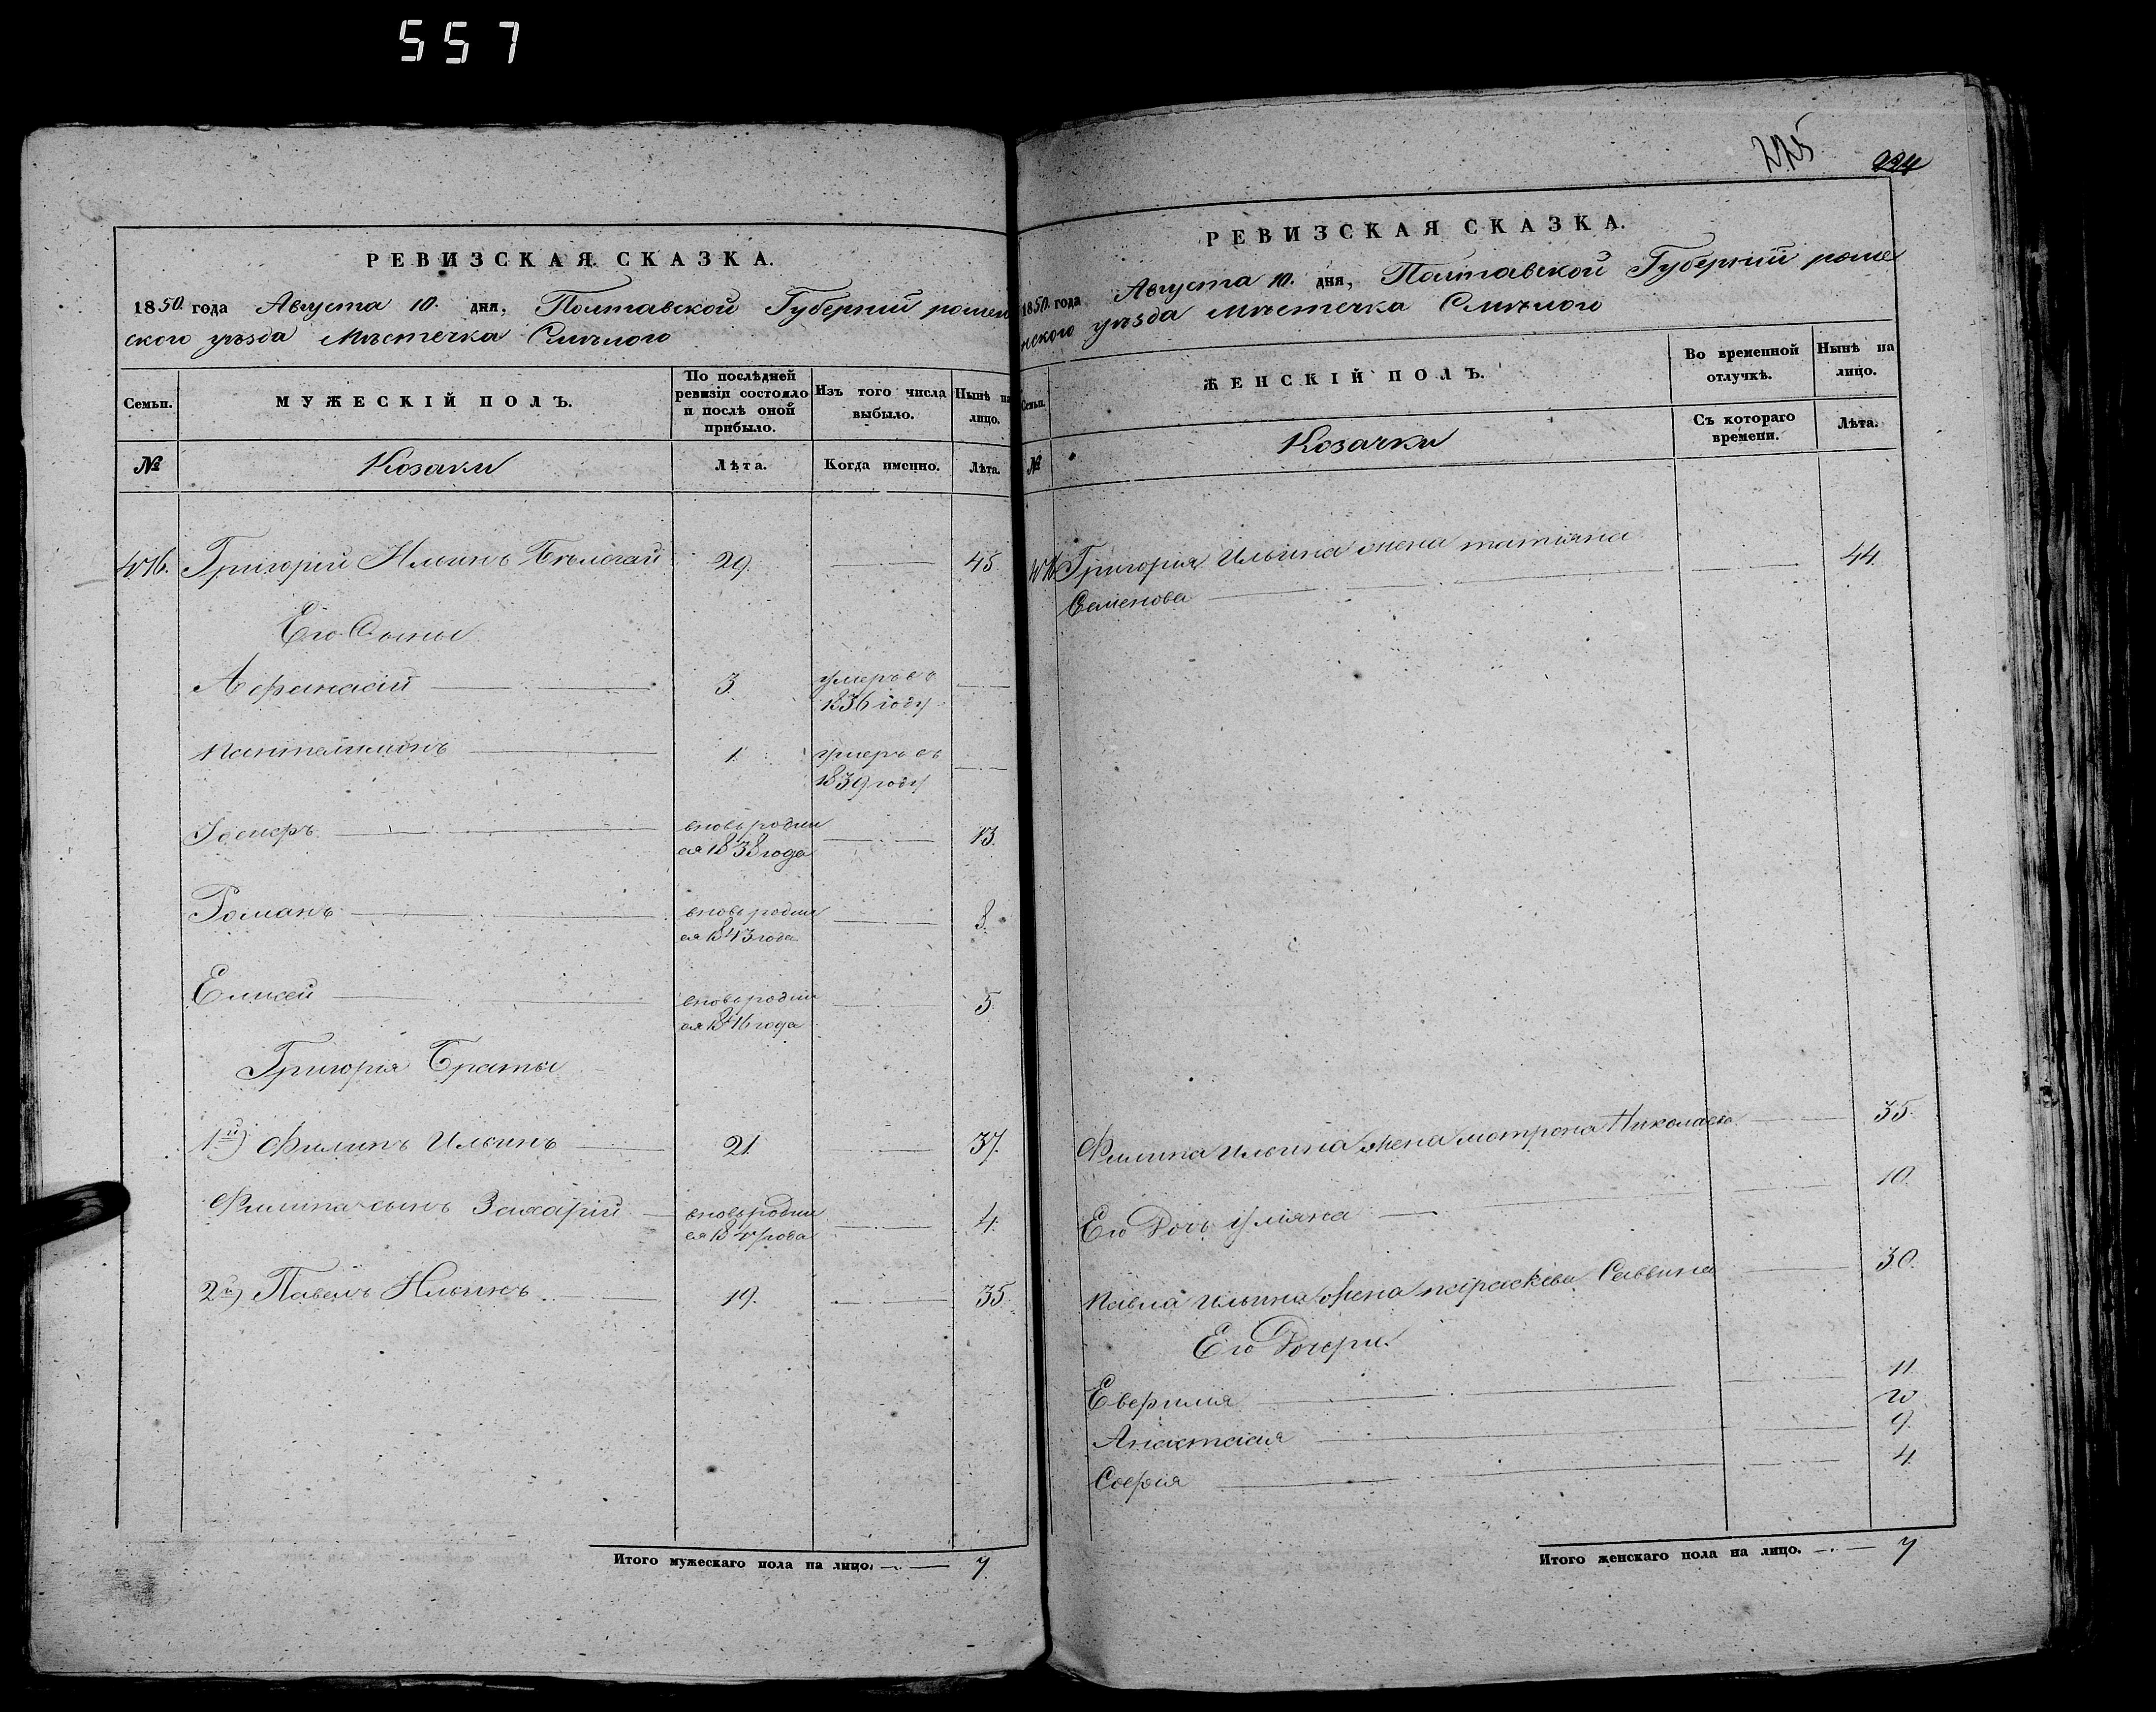 557
РЕВИЗСКАЯ СКАЗКА.
1850. года Августа 10. дня, Полтавской Губерніи ромен
ского уѣзда Мѣстечка Смѣлого
Семьи.
МУЖЕСКІЙ ПОЛЪ.
По послѣдней ревизіи состояло и послѣ оной прибыло.
Изъ того числа выбыло.
Нынѣ на лицо.
№
Козаки
Лѣта.
Когда именно.
Лѣта.
Григорій Ильинъ 29. 45
Его Сыны
Афанасій 3. умеръ въ
1836 году
Пантелимонъ 1. умеръ въ
1839 году
вновь родил
ся 1838 года 13.
Романъ вновь родил
ся 1843 года 8.
Елисей вновь родил
ся 1846 года 5.
Григорія Браты
1й) Филипъ Ильинъ 21. 37.
Филипа сынъ Захарій вновь родил
ся 1847 года 4.
2й) Павелъ Ильинъ 19. 35
Итого мужескаго пола на лицо. 7.
225 224
РЕВИЗСКАЯ СКАЗКА.
1850. года Августа 10. дня, Полтавской Губерній роме
нского уѣзда Мѣстечка Смѣлого
Семьи.
ЖЕНСКІЙ ПОЛЪ.
Во временной отлучкѣ.
Нынѣ на лицо.
№
Козачки
Съ котораго времени.
Лѣта.
Григорія Ильина жена татіяна
Семенова 44.
Филипа Ильина жена мотрона Николаева 35.
Его Дочь уліяна 10.
Павла Ильина жена параскева Саввина 30.
Его Дочери
Евфимія 11.
Анастасія 9.
Софія 4.
Итого женскаго пола на лицо. 7